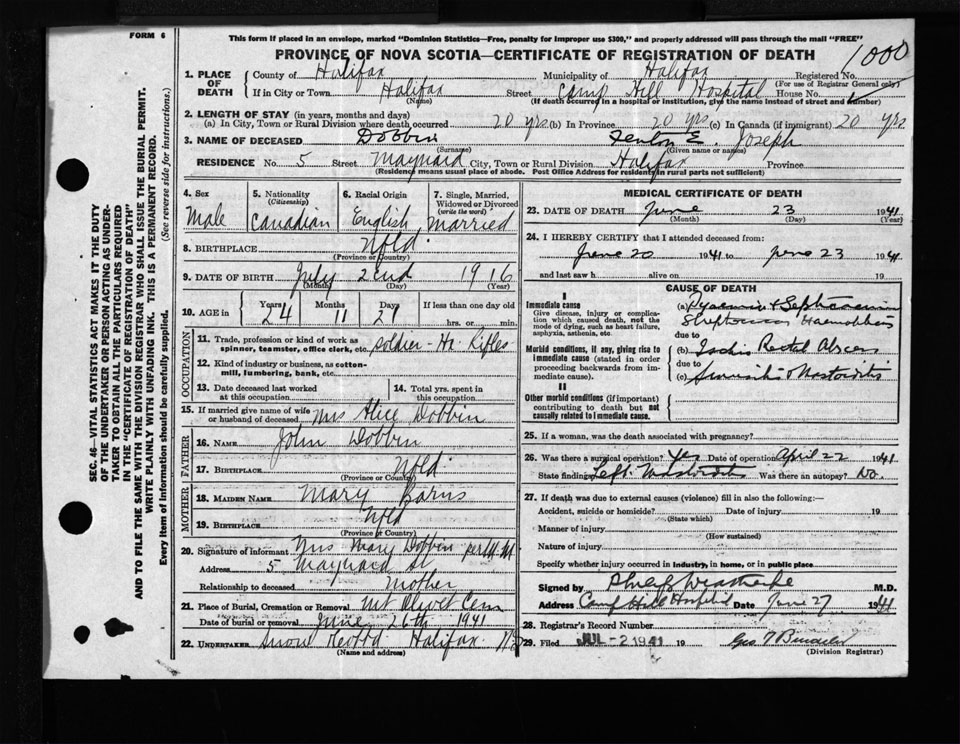 FORM 6
This form if placed in an envelope, marked "Dominion Statistics—Free, penalty for improper use $300," and properly addressed will pass through the mail "FREE"
PROVINCE OF NOVA SCOTIA—CERTIFICATE OF REGISTRATION OF DEATH
1000
1. PLACE OF DEATH
County of Halifax Municipality of Halifax Registered No.
(For use of Registrar General only)
If in City or Town Halifax Street Camp Hill Hospital House No.
(Name) (If death occurred in a hospital or institution, give the name instead of street and number)
2. LENGTH OF STAY (in years, months and days)
(a) In City, Town or Rural Division where death occurred 20 yrs (b) In Province 20 yrs (c) In Canada (if immigrant) 20 yrs
3. NAME OF DECEASED Dobbin E. Joseph
(Surname) (Given name or names)
RESIDENCE No. 5 Street Maynard City, Town or Rural Division Halifax Province
(Residence means usual place of abode. Post Office Address for residents in rural parts not sufficient)
4. Sex Male
5. Nationality (Citizenship) Canadian
6. Racial Origin English
7. Single, Married, Widowed or Divorced (write the word) Married
8. BIRTHPLACE Nfld.
(Province or Country)
9. DATE OF BIRTH July 22nd 1916
(Month) (Day) (Year)
10. AGE in Years 24 Months 11 Days 21 If less than one day old
hrs. or min.
OCCUPATION
11. Trade, profession or kind of work as spinner, teamster, office clerk, etc. Soldier - Hx Rifles
12. Kind of industry or business, as cotton-mill, lumbering, bank, etc.
13. Date deceased last worked at this occupation
14. Total yrs. spent in this occupation
15. If married give name of wife or husband of deceased Mrs Alice Dobbin
FATHER
16. NAME John Dobbin
17. BIRTHPLACE Nfld.
(Province or Country)
MOTHER
18. MAIDEN NAME Mary
19. BIRTHPLACE Nfld
(Province or Country)
20. Signature of informant Mrs Mary Dobbin per
Address 5 Maynard St
Relationship to deceased Mother
21. Place of Burial, Cremation or Removal Mt Olivet Cem
Date of burial or removal June 26th 1941
22. UNDERTAKER Snow Halifax NS
(Name and address)
MEDICAL CERTIFICATE OF DEATH
23. DATE OF DEATH June 23 1941
(Month) (Day) (Year)
24. I HEREBY CERTIFY that I attended deceased from:
June 20 1941 to June 23 1941
and last saw h alive on 19
CAUSE OF DEATH
I
Immediate cause
Give disease, injury or complication which caused death, not the mode of dying, such as heart failure, asphyxia, asthenia, etc.
(a) Pyaemia + Septicaemia
due to
Morbid conditions, if any, giving rise to immediate cause (stated in order proceeding backwards from immediate cause).
(b) Ischio Rectal Abscess
due to
(c) Mastoiditis
II
Other morbid conditions (if important) contributing to death but not causally related to immediate cause.
25. If a woman, was the death associated with pregnancy?
26. Was there a surgical operation? Yes Date of operation April 22 1941
State findings Left Mastoiditis Was there an autopsy? No.
27. If death was due to external causes (violence) fill in also the following:—
Accident, suicide or homicide? Date of injury 19
(State which)
Manner of injury
(How sustained)
Nature of injury
Specify whether injury occurred in industry, in home, or in public place
Signed by M.D.
Address Camp Hill Hospital Date June 27 1941
28. Registrar's Record Number
29. Filed JUL -2 1941 19 Geo
(Division Registrar)
SEC. 46—VITAL STATISTICS ACT MAKES IT THE DUTY
OF THE UNDERTAKER OR PERSON ACTING AS UNDER-
TAKER TO OBTAIN ALL THE PARTICULARS REQUIRED
IN THE "CERTIFICATE OF REGISTRATION OF DEATH"
AND TO FILE THE SAME WITH THE DIVISION REGISTRAR WHO SHALL ISSUE THE BURIAL PERMIT.
WRITE PLAINLY WITH UNFADING INK. THIS IS A PERMANENT RECORD.
Every item of information should be carefully supplied. (See reverse side for instructions.)